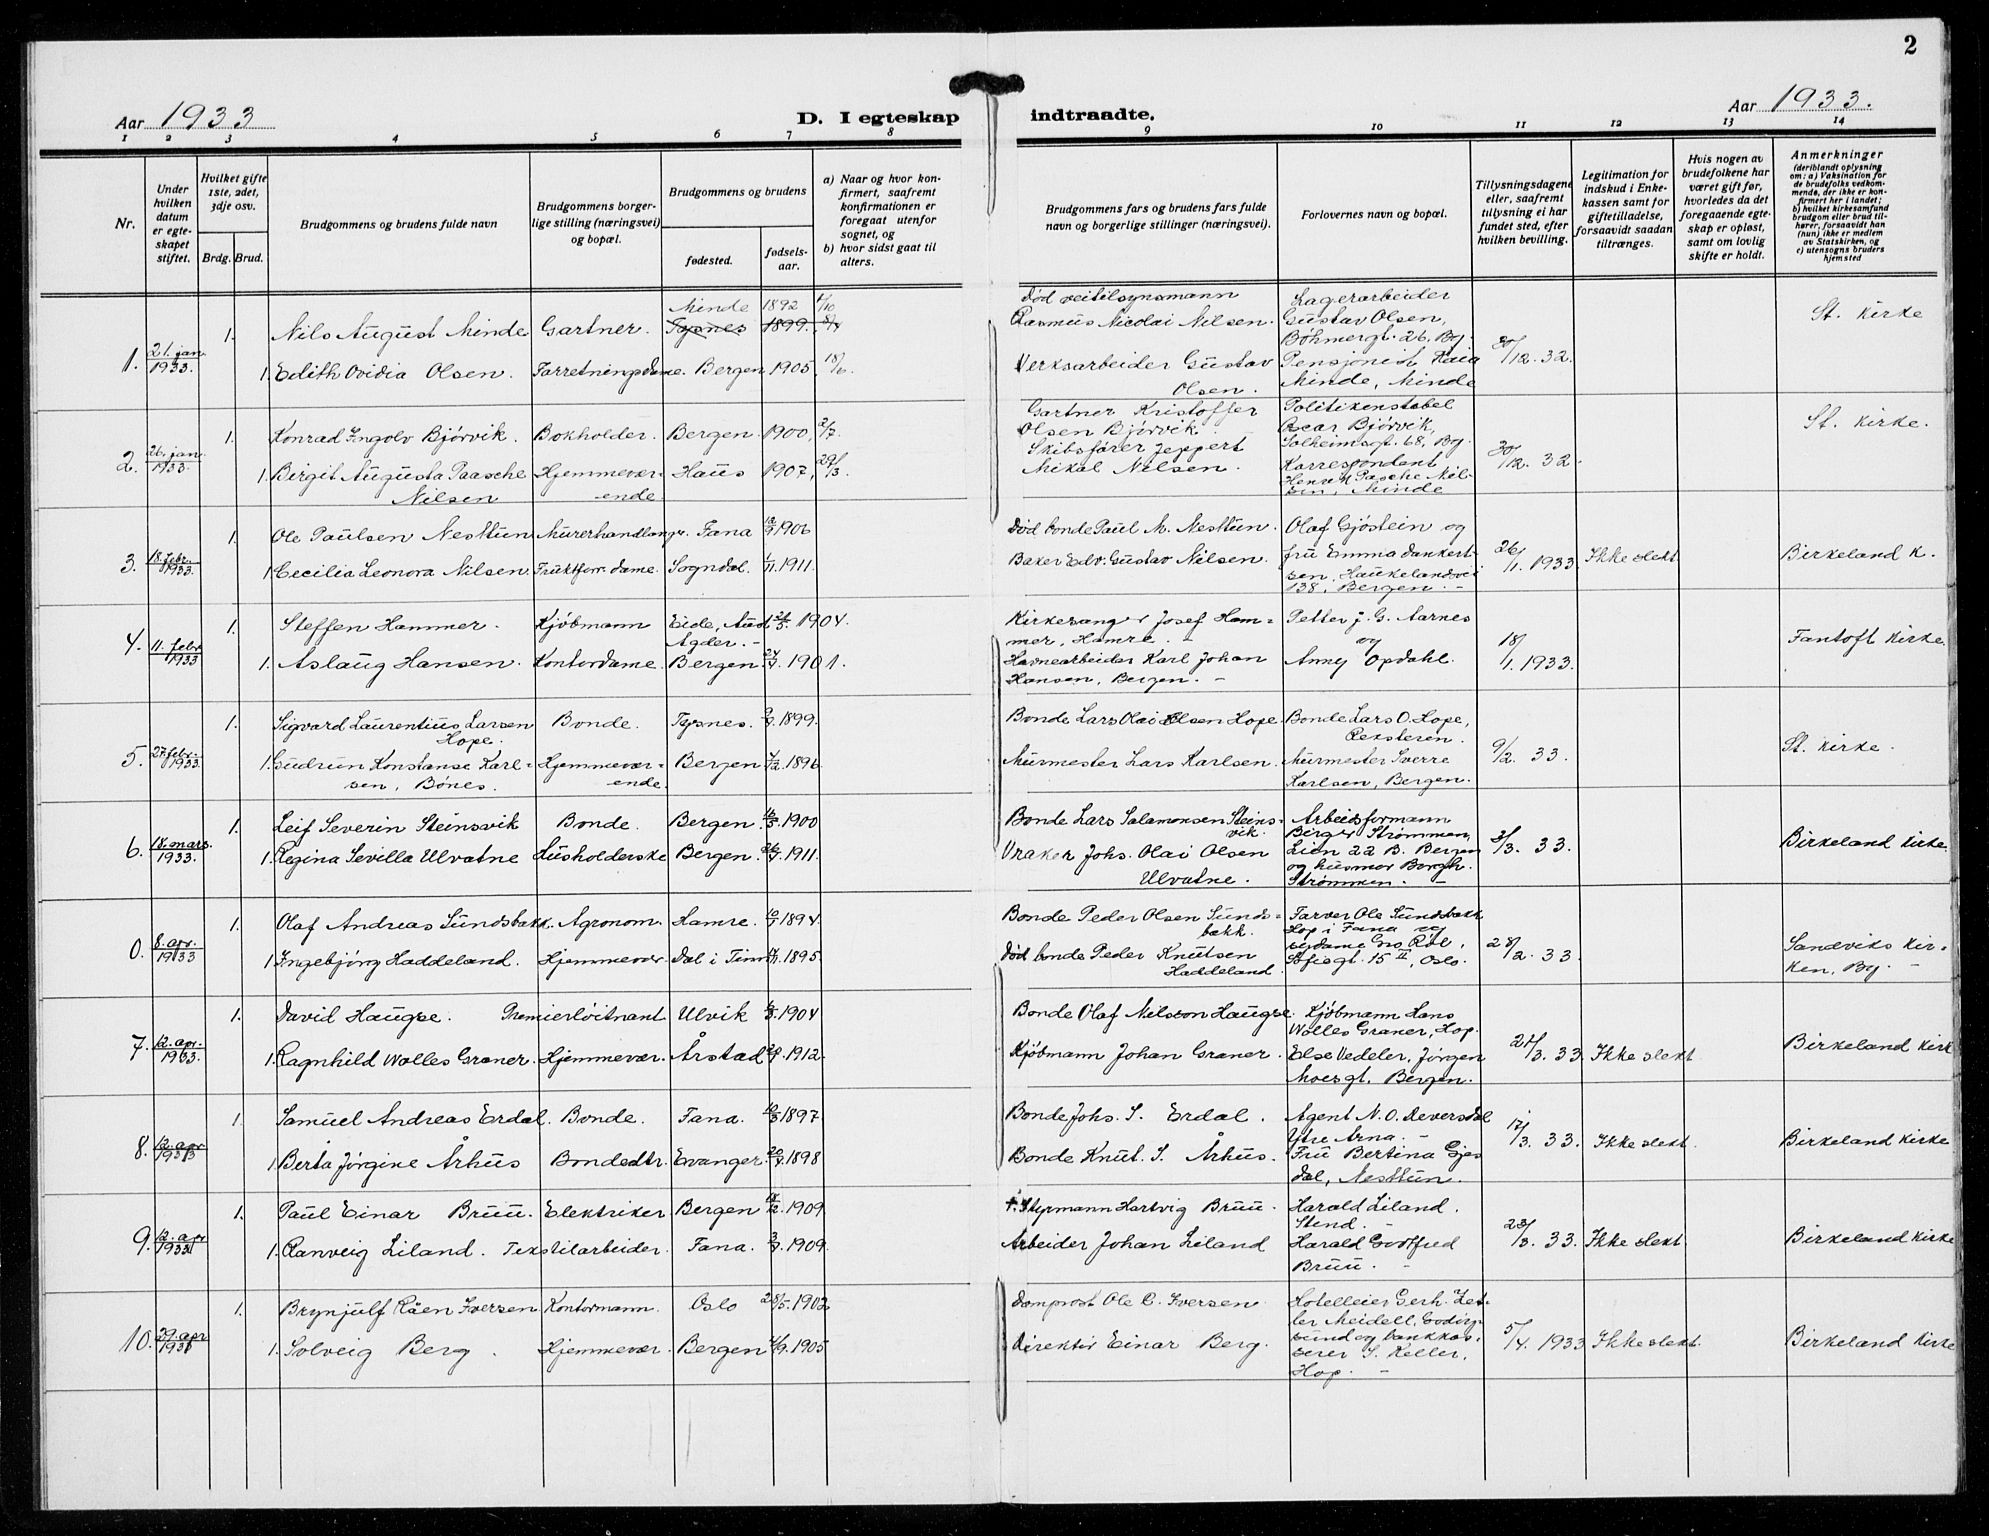 2
Aar 1933
D. I egteskap indtraadte.
Aar 1933.
1 2 3 4 5 6 7 8 9 10 11 12 13 14
Nr.
Under hvilken datum er egteskapet stiftet.
Hvilket gifte 1ste, 2det, 3dje osv.
Brdg. Brud.
Brudgommens og brudens fulde navn
Brudgommens borgerlige stilling (næringsvei) og bopæl.
Brudgommens og brudens
fødested.
fødselsaar.
a) Naar og hvor konfirmert, saafremt konfirmationen er foregaat utenfor sognet, og
b) hvor sidst gaat til alters.
Brudgommens fars og brudens fars fulde navn og borgerlige stillinger (næringsvei).
Forlovernes navn og bopæl.
Tillysningsdagene eller, saafremt tillysning ei har fundet sted, efter hvilken bevilling.
Legitimation for indskud i Enkekassen samt for giftetilladelse, forsaavidt saadan tiltrænges.
Hvis nogen av brudefolkene har været gift før, hvorledes da det foregaaende egteskap er opløst, samt om lovlig skifte er holdt.
Anmerkninger
(deriblandt oplysning om: a) Vaksination for de brudefolks vedkommende, der ikke er konfirmert her i landet; b) hvilket kirkesamfund brudgom eller brud tilhører, forsaavidt han (hun) ikke er medlem av Statskirken, og c) utensogns bruders hjemsted
1. 21. jan 1933.
1. Nils August Minde Gartner. Minde 1892
Tysnes 1899.
Død veitilsynsmann
Rasmus Nicolai Nilsen.
Lagerarbeider
Gustav Olsen,
Böhmergt. 26, By.
1. Edith Ovidia Olsen. Forretningsdame. Bergen 1905
Verksarbeider Gustav
Olsen.
Pensjonist Kaia
Minde, Minde
30/12. 32.
St. Kirke
2. 26. jan 1933.
1. Konrad Ingolv Bjørvik. Bokholder. Bergen. 1900,
Gartner Kristoffer
Olsen Bjørvik.
Politikonstabel
Oscar Bjørvik,
Solheimsgt. 68, By.
1. Birgit Augusta Paasche
Nilsen
Hjemmeværende Haus 1907,
Skibsfører Jeppert
Mikal Nilsen.
Korrespondent
Henry Pasche Nilsen, Minde
30/12. 32.
St. Kirke.
3. 18. febr. 1933.
1. Ole Paulsen Nesttun Murerhandlangr. Fana 1906
Død bonde Paul M. Nesttun.
Olaf Gjøstein og
1. Cecilia Leonora Nilsen. Fruktforr. dame. Sogndal. 1/11. 1911.
Baker Edv. Gustav Nilsen.
fru Emma Dankertsen, Haukelandsvei
138, Bergen. –
26/1. 1933. Ikke slekt.
Birkeland K.
4. 11. febr 1933
1. Steffen Hammer. Kjøbmann Eide, Aust
Agder. – 1904.
Kirkesanger Josef Hammer, Hamre. –
Petter J. G. Aarnes
og
1. Aslaug Hansen. Kontordame. Bergen 1901.
Havnearbeider Karl Johan
Hansen, Bergen. –
Anny Opdahl.
18/1. 1933.
Fantoft Kirke.
5. 27. febr. 1933.
1. Sigvard Laurentius Larsen
Hope.
Bonde. Tysnes. 1899.
Bonde Lars Olai Olsen Hope
Bonde Lars O. Hope,
Reksteren.
1. Gudrun Konstanse Karlsen, Bønes.
Hjemmeværende. Bergen 1896.
Murmester Lars Karlsen.
Murmester Sverre
Karlsen, Bergen.
9/2. 33.
St. Kirke.
6. 18. mars. 1933.
1. Leif Severin Steinsvik Bonde. Bergen. 1900
Bonde Lars Salamonsen Steinsvik.
Arbeidsformann
Birger Strømmen,
Lien 22 B. Bergen
og husmor Borgh.
Strømmen. –
1. Regina Sevilla Ulvatne Husholderske Bergen. 1911.
Vraker Johs. Olai Olsen
Ulvatne.
3/3. 33.
Birkeland Kirke.
0. 8. apr. 1933
1. Olaf Andreas Sundsbakk. Agronom. Hamre. 1894.
Bonde Peder Olsen Sundsbakk.
Farver Ole Sundsbakk
Hop i Fana og
sydame Gro Röl,
Sofiesgt. 15 II, Oslo.
1. Ingebjörg Haddeland. Hjemmevær. Dal i Tinn 1895.
Død bonde Peder Knutsen
Haddeland
28/2. 33.
Sandviks Kirken, By. –
7. 12. apr. 1933.
1. David Haugse. Premierløitnant Ulvik 1904
Bonde Olaf Nilsson Haugse.
Kjøbmann Hans
Wolles Graner, Hop.
1. Ragnhild Wolles Graner. Hjemmevær. Årstad 1912.
Kjøbmann Johan Graner.
Else Vedeler, Jørgen
Moesgt. Bergen.
21/3. 33. Ikke slekt
Birkeland Kirk
8. 12. apr. 1933
1. Samuel Andreas Erdal. Bonde. Fana. 1897
Bonde Johs. S. Erdal.
Agent N. O. Reversdal
Ytre Arna. –
1. Berta Jørgine Århus Bondedtr. Evanger. 1898
Bonde Knut. S. Århus.
Fru Bertina Gjesdal, Nesttun.
17/3. 33. Ikke slekt.
Birkeland Kirke
9. 12. apr 1933
1. Paul Einar Bruu. Elektriker Bergen 1909
f. Styrmann Hartvig Bruu.
Harald Liland.
Stend.
1. Ranveig Liland. Tekstilarbeider. Fana. 1909.
Arbeider Johan Liland
Harald Gottfred
Bruu. –
23/3. 33. Ikke slekt.
Birkeland Kirke
10. 29. apr 1933
1. Brynjulf Råen Iversen Kontormann. Oslo 28/5. 1902
Domprost Ole C. Iversen.
Hotelleier Gerh. Zetler Meidell, Godøysund og bankkasserer S. Keller,
Hop. –
1. Solveig Berg. Hjemmevær. Bergen 1905
Direktør Einar Berg.
5/4. 1933 Ikke slekt.
Birkeland Kirke